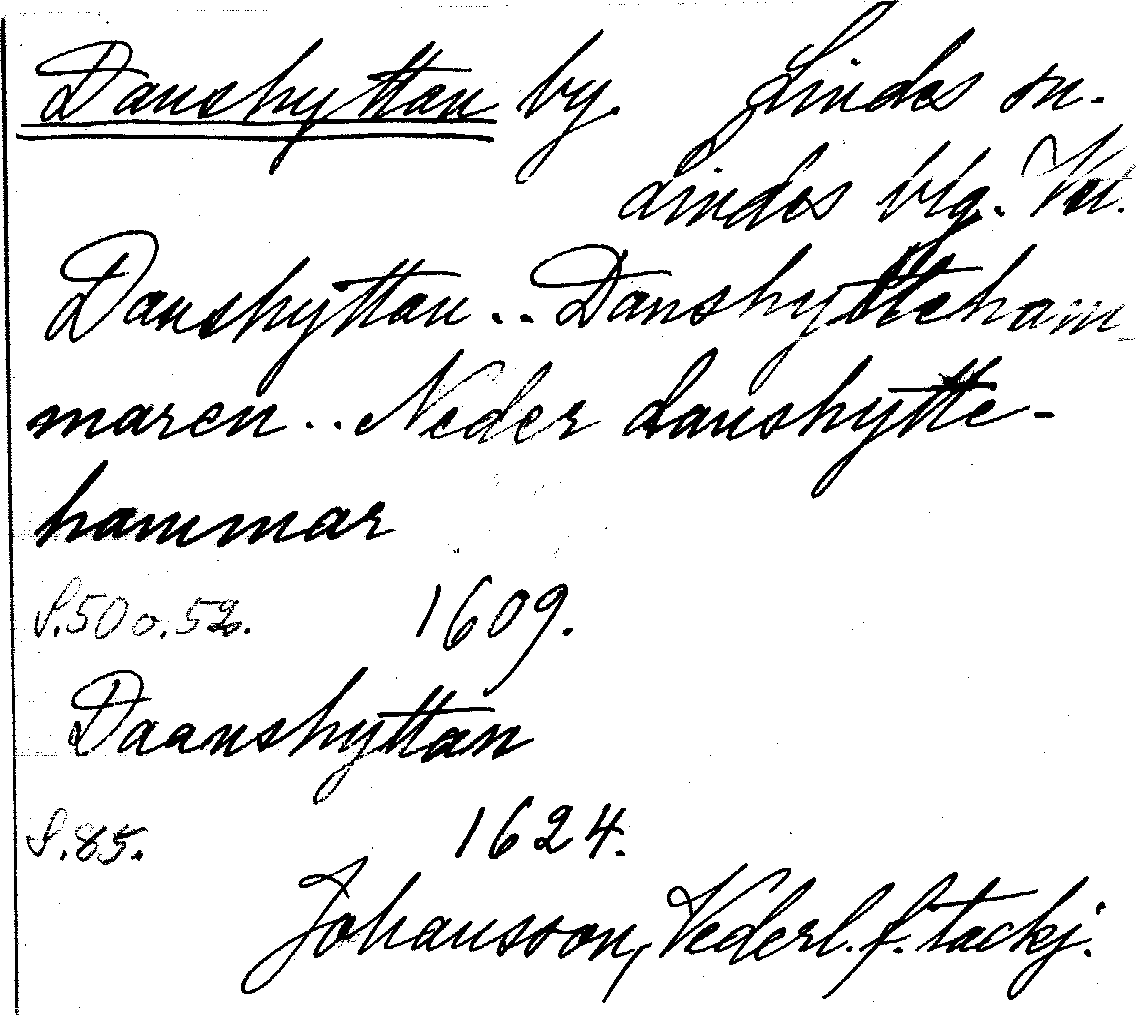 Danshyttan by. Lindes sn.
Lindes blg. Vstm.
Danshyttan .. Danshytteham-
maren .. Neder danshytte-
hammar
S. 50 o. 52. 1609.
Daanshyttan
S. 85. 1624.
Johansson, Vederl. f. tackj.